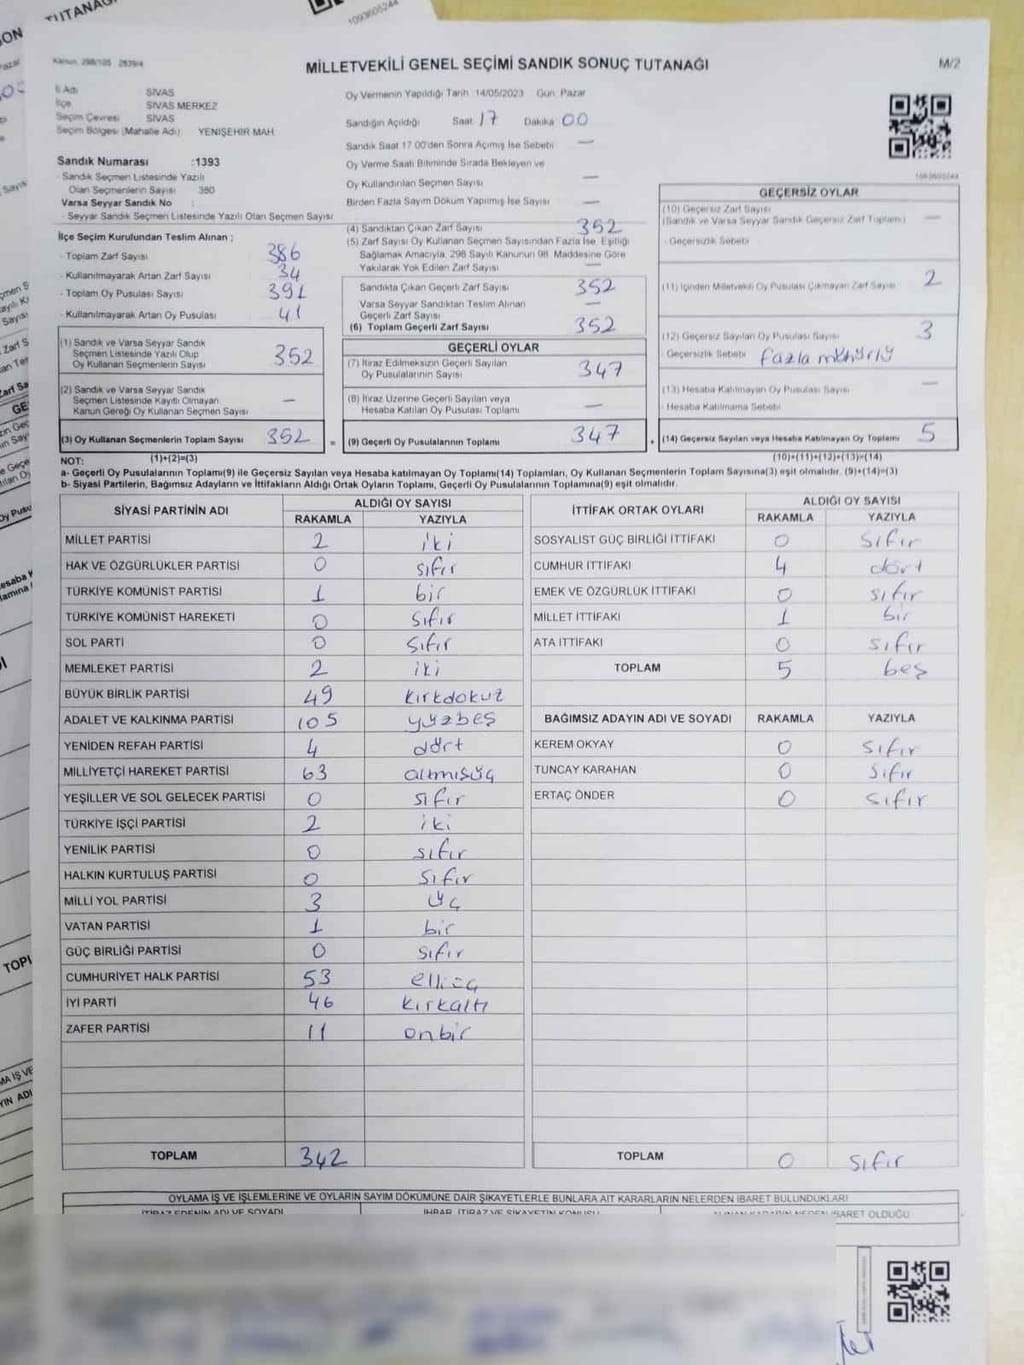 TUTANAĞI
1093605244
Kanun: 298/105 2839/4
MİLLETVEKİLİ GENEL SEÇİMİ SANDIK SONUÇ TUTANAĞI
M/2
İl Adı SİVAS
İlçe SİVAS MERKEZ
Seçim Çevresi SİVAS
Seçim Bölgesi (Mahalle Adı) YENİŞEHİR MAH.
Sandık Numarası :1393
- Sandık Seçmen Listesinde Yazılı
Olan Seçmenlerin Sayısı 380
Varsa Seyyar Sandık No :
- Seyyar Sandık Seçmen Listesinde Yazılı Olan Seçmen Sayısı
İlçe Seçim Kurulundan Teslim Alınan ;
- Toplam Zarf Sayısı 386
- Kullanılmayarak Artan Zarf Sayısı 34
- Toplam Oy Pusulası Sayısı 391
- Kullanılmayarak Artan Oy Pusulası 41
(1) Sandık ve Varsa Seyyar Sandık
Seçmen Listesinde Yazılı Olup
Oy Kullanan Seçmenlerin Sayısı 352
(2) Sandık ve Varsa Seyyar Sandık
Seçmen Listesinde Kayıtlı Olmayan
Kanun Gereği Oy Kullanan Seçmen Sayısı —
(3) Oy Kullanan Seçmenlerin Toplam Sayısı 352
(1)+(2)=(3)
Oy Vermenin Yapıldığı Tarih 14/05/2023 Gün: Pazar
Sandığın Açıldığı Saat 17 Dakika 00
Sandık Saat 17.00'den Sonra Açmış İse Sebebi —
Oy Verme Saati Bitiminde Sırada Bekleyen ve
Oy Kullandırılan Seçmen Sayısı —
Birden Fazla Sayım Döküm Yapılmış İse Sayısı —
(4) Sandıktan Çıkan Zarf Sayısı 352
(5) Zarf Sayısı Oy Kullanan Seçmen Sayısından Fazla İse, Eşitliği
Sağlamak Amacıyla, 298 Sayılı Kanunun 98. Maddesine Göre
Yakılarak Yok Edilen Zarf Sayısı —
Sandıkta Çıkan Geçerli Zarf Sayısı 352
Varsa Seyyar Sandıktan Teslim Alınan
Geçerli Zarf Sayısı —
(6) Toplam Geçerli Zarf Sayısı 352
GEÇERLİ OYLAR
(7) İtiraz Edilmeksizin Geçerli Sayılan
Oy Pusulalarının Sayısı 347
(8) İtiraz Üzerine Geçerli Sayılan veya
Hesaba Katılan Oy Pusulası Toplamı —
= (9) Geçerli Oy Pusulalarının Toplamı 347
1093605244
GEÇERSİZ OYLAR
(10) Geçersiz Zarf Sayısı
(Sandık ve Varsa Seyyar Sandık Geçersiz Zarf Toplamı) —
- Geçersizlik Sebebi
(11) İçinden Milletvekili Oy Pusulası Çıkmayan Zarf Sayısı 2
(12) Geçersiz Sayılan Oy Pusulası Sayısı 3
- Geçersizlik Sebebi fazla mühürlü
(13) Hesaba Katılmayan Oy Pusulası Sayısı —
- Hesaba Katılmama Sebebi
(14) Geçersiz Sayılan veya Hesaba Katılmayan Oy Toplamı 5
(10)+(11)+(12)+(13)=(14)
NOT:
a- Geçerli Oy Pusulalarının Toplamı(9) ile Geçersiz Sayılan veya Hesaba katılmayan Oy Toplamı(14) Toplamları, Oy Kullanan Seçmenlerin Toplam Sayısına(3) eşit olmalıdır. (9)+(14)=(3)
b- Siyasi Partilerin, Bağımsız Adayların ve İttifakların Aldığı Ortak Oyların Toplamı, Geçerli Oy Pusulalarının Toplamına(9) eşit olmalıdır.
SİYASİ PARTİNİN ADI ALDIĞI OY SAYISI
RAKAMLA YAZIYLA
MİLLET PARTİSİ 2 iki
HAK VE ÖZGÜRLÜKLER PARTİSİ 0 sıfır
TÜRKİYE KOMÜNİST PARTİSİ 1 bir
TÜRKİYE KOMÜNİST HAREKETİ 0 sıfır
SOL PARTİ 0 sıfır
MEMLEKET PARTİSİ 2 iki
BÜYÜK BİRLİK PARTİSİ 49 kırkdokuz
ADALET VE KALKINMA PARTİSİ 105 yüzbeş
YENİDEN REFAH PARTİSİ 4 dört
MİLLİYETÇİ HAREKET PARTİSİ 63 altmışüç
YEŞİLLER VE SOL GELECEK PARTİSİ 0 sıfır
TÜRKİYE İŞÇİ PARTİSİ 2 iki
YENİLİK PARTİSİ 0 sıfır
HALKIN KURTULUŞ PARTİSİ 0 sıfır
MİLLİ YOL PARTİSİ 3 üç
VATAN PARTİSİ 1 bir
GÜÇ BİRLİĞİ PARTİSİ 0 sıfır
CUMHURİYET HALK PARTİSİ 53 elliüç
İYİ PARTİ 46 kırkaltı
ZAFER PARTİSİ 11 onbir
TOPLAM 342
İTTİFAK ORTAK OYLARI ALDIĞI OY SAYISI
RAKAMLA YAZIYLA
SOSYALİST GÜÇ BİRLİĞİ İTTİFAKI 0 sıfır
CUMHUR İTTİFAKI 4 dört
EMEK VE ÖZGÜRLÜK İTTİFAKI 0 sıfır
MİLLET İTTİFAKI 1 bir
ATA İTTİFAKI 0 sıfır
TOPLAM 5 beş
BAĞIMSIZ ADAYIN ADI VE SOYADI RAKAMLA YAZIYLA
KEREM OKYAY 0 sıfır
TUNCAY KARAHAN 0 sıfır
ERTAÇ ÖNDER 0 sıfır
TOPLAM 0 sıfır
OYLAMA İŞ VE İŞLEMLERİNE VE OYLARIN SAYIM DÖKÜMÜNE DAİR ŞİKAYETLERLE BUNLARA AİT KARARLARIN NELERDEN İBARET BULUNDUKLARI
İTİRAZ EDENİN ADI VE SOYADI İHBAR, İTİRAZ VE ŞİKAYETİN KONUSU ALINAN KARARIN NEDEN İBARET OLDUĞU